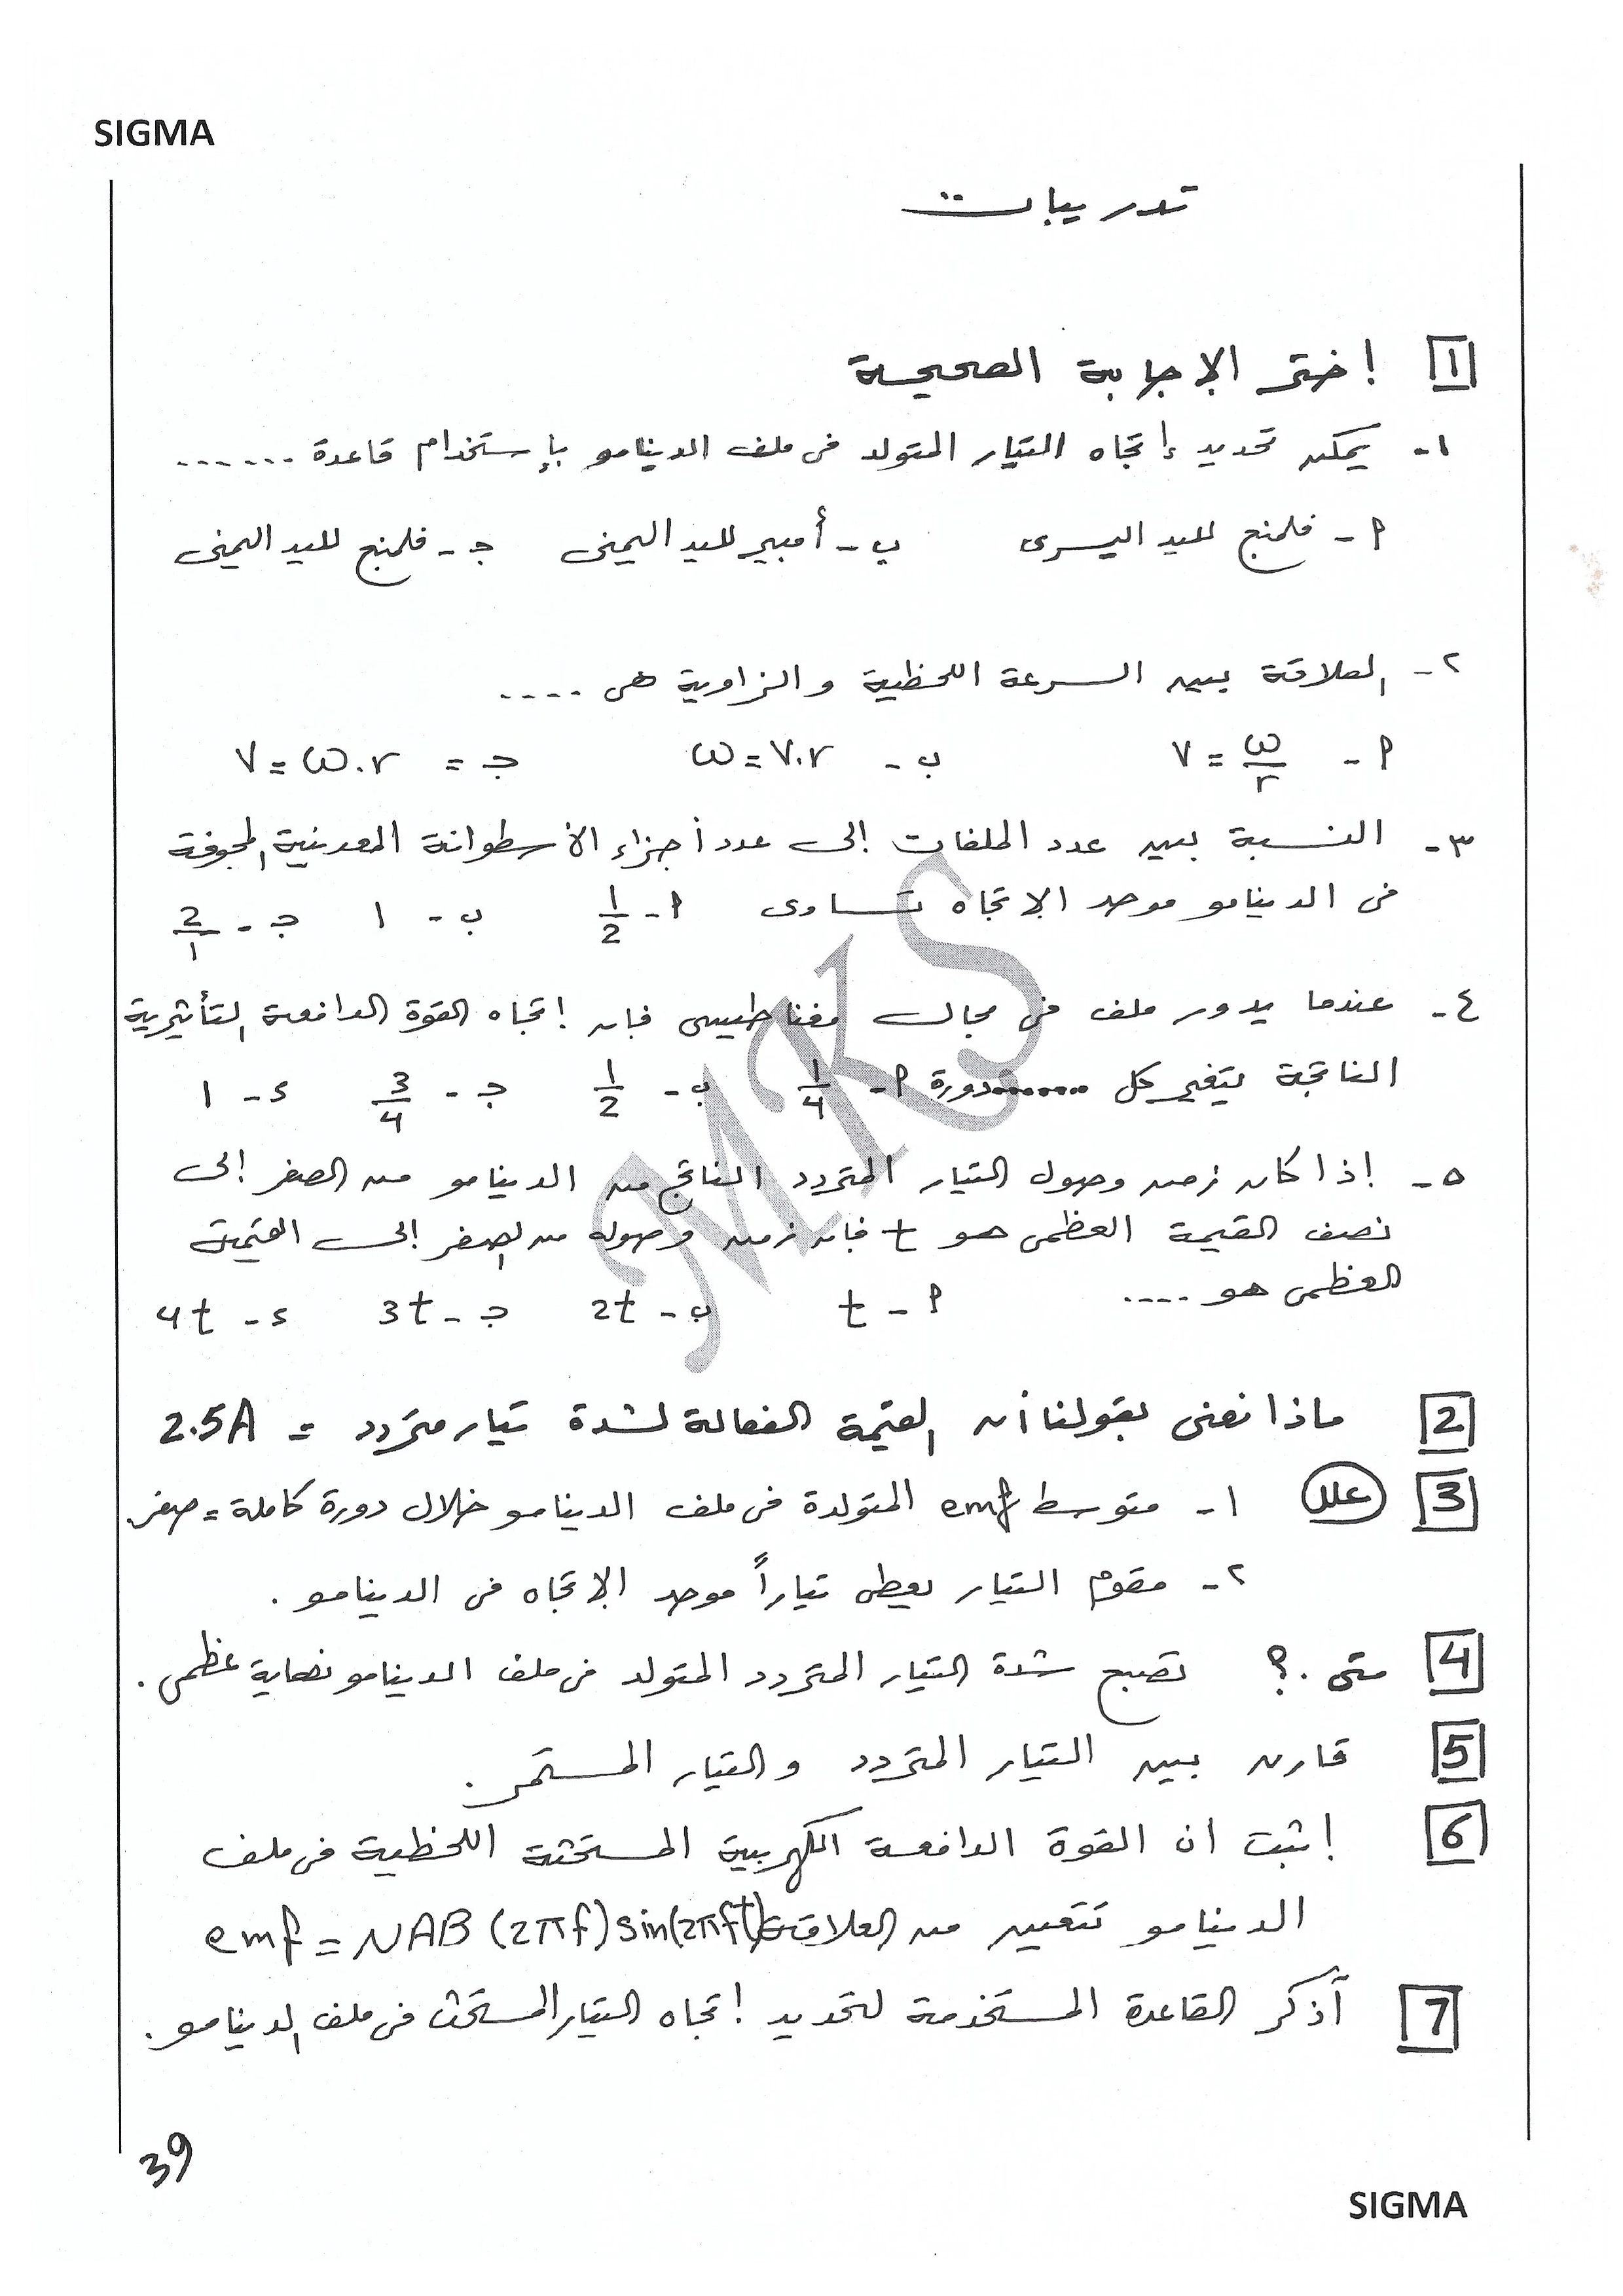 SIGMA
تدريبات
1 إختر الإجابة الصحيحة
١- يمكن تحديد إتجاه التيار المتولد فى ملف الدينامو بإستخدام قاعدة ......
أ- فلمنج لليد اليسرى ب- أمبير لليد اليمنى جـ- فلمنج لليد اليمنى
٢- العلاقة بين السرعة اللحظية والزاوية هى ....
أ- v = ω/r ب- ω = v.r جـ = v = ω.r
٣- النسبة بين عدد الملفات إلى عدد أجزاء الأسطوانة المعدنية المجوفة
فى الدينامو موحد الإتجاه تساوى أ- 1/2 ب- ١ جـ- 2/1
٤- عندما يدور ملف فى مجال مغناطيسى فإن إتجاه القوة الدافعة التأثيرية
الناتجة يتغير كل ........ دورة أ- 1/4 ب- 1/2 جـ- 3/4 د- ١
٥- إذا كان زمن وصول التيار المتردد الناتج من الدينامو من الصفر إلى
نصف القيمة العظمى هو t فإن زمن وصوله من الصفر إلى القيمة
العظمى هو .... أ- t ب- 2t جـ- 3t د- 4t
2 ماذا نعنى بقولنا أن القيمة الفعالة لشدة تيار متردد = 2.5A
3 علل ١- متوسط emf المتولدة فى ملف الدينامو خلال دورة كاملة = صفر.
٢- مقوم التيار يعطى تياراً موحد الإتجاه فى الدينامو .
4 متى .؟ تصبح شدة التيار المتردد المتولد فى ملف الدينامو نهاية عظمى .
5 قارن بين التيار المتردد والتيار المستمر .
6 إثبت ان القوة الدافعة الكهربية المستحثة اللحظية فى ملف
الدينامو تتعين من العلاقة emf = NAB (2πf) sin(2πft)
7 أذكر القاعدة المستخدمة لتحديد إتجاه التيار المستحث فى ملف الدينامو .
39
SIGMA
MKS